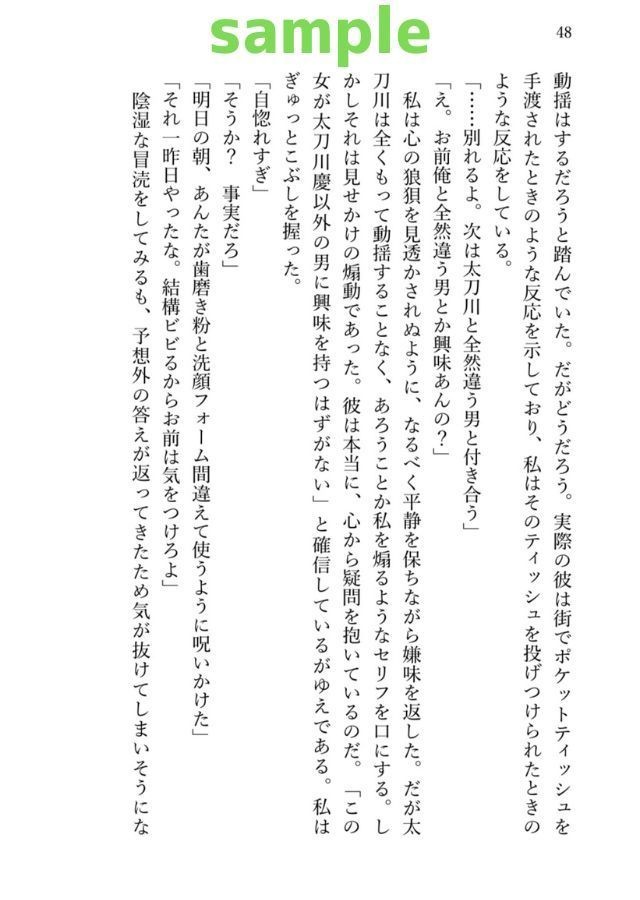 sample
48
動揺はするだろうと踏んでいた。だがどうだろう。実際の彼は街でポケットティッシュを
手渡されたときのような反応を示しており、私はそのティッシュを投げつけられたときの
ような反応をしている。
「……別れるよ。次は太刀川と全然違う男と付き合う」
「え。お前俺と全然違う男とか興味あんの？」
私は心の狼狽を見透かされぬように、なるべく平静を保ちながら嫌味を返した。だが太
刀川は全くもって動揺することなく、あろうことか私を煽るようなセリフを口にする。し
かしそれは見せかけの煽動であった。彼は本当に、心から疑問を抱いているのだ。「この
女が太刀川慶以外の男に興味を持つはずがない」と確信しているがゆえである。私は
ぎゅっとこぶしを握った。
「自惚れすぎ」
「そうか？　事実だろ」
「明日の朝、あんたが歯磨き粉と洗顔フォーム間違えて使うように呪いかけた」
「それ一昨日やったな。結構ビビるからお前は気をつけろよ」
陰湿な冒涜をしてみるも、予想外の答えが返ってきたため気が抜けてしまいそうにな